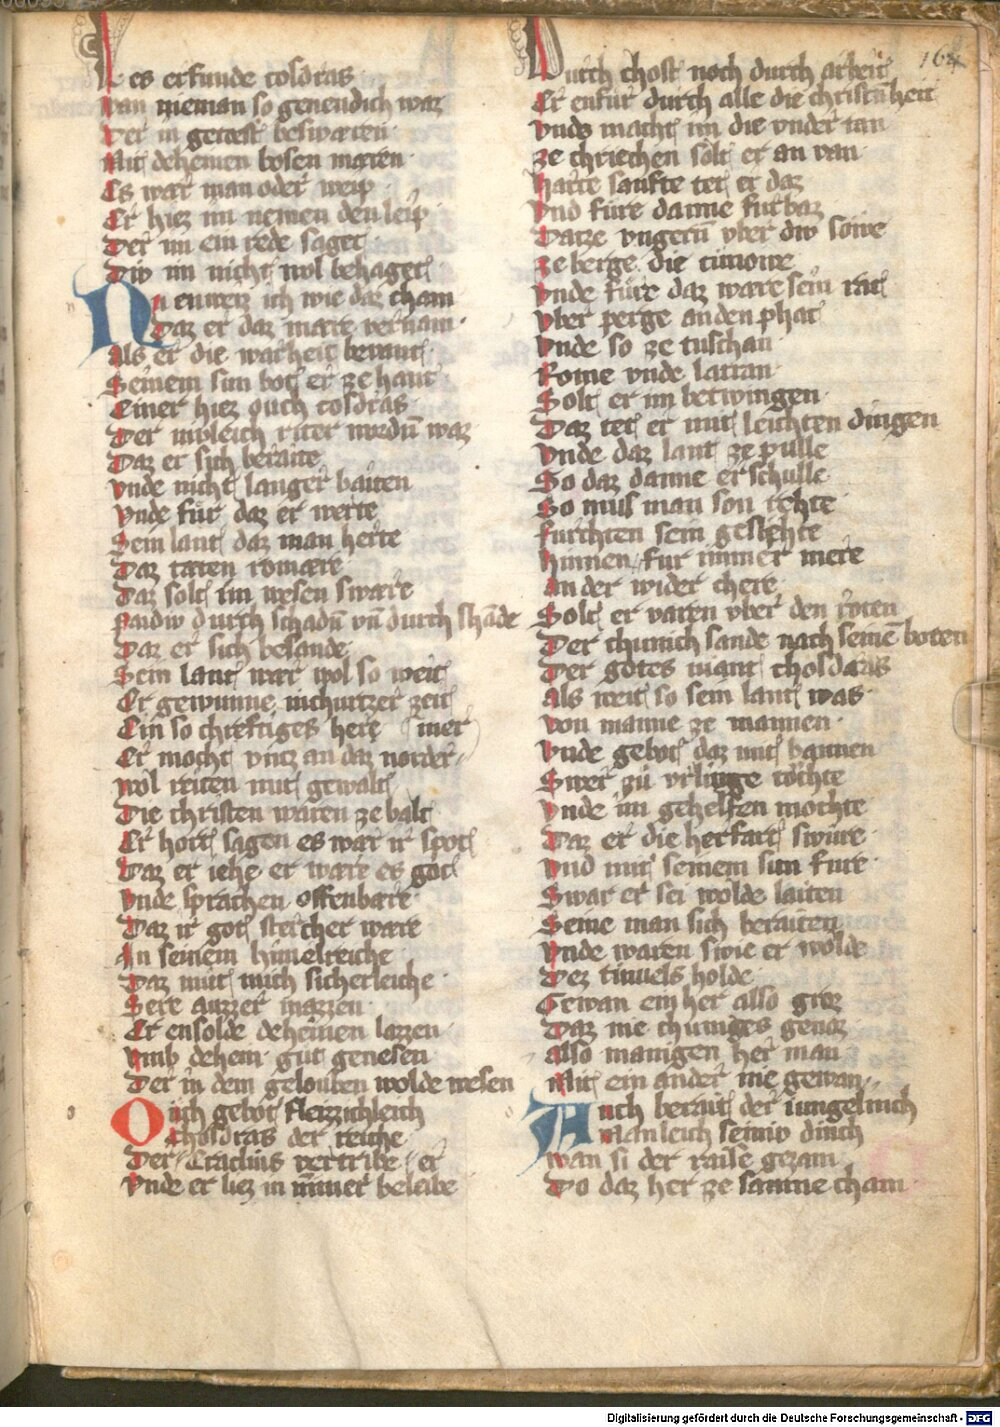 164
es erfunde cosdras
wan nieman so genendich waz
Der in getorst beswaren
Mit deheinen bosen maren
Es wær man oder weip
Er hiez im nemen den leip
Der im ein rede saget
Div im nicht wol behaget
Nu enweiz ich wie daz cham
Daz er daz mære vernam
Als er die warheit bevant
Seinem sun bot er ze hant
Einer hiez ouch cosdras
Der riter wordn waz
Daz er sich beraite
Vnde nicht langer baiten
Vnde für daz er werte
Sein lant daz man herte
Daz taten romære
Daz solt im wesen swære
durch schadn vn durch schāde
Daz er sich besande
Sein lant wær wol so weit
Er gewunne inchurtzer zeit
Ein so chreftiges here
Er mocht vntz an daz norder mer
wol reiten mit gewalt
Die christen waren ze balt
Er hort sagen es wær ir spot
Daz er iehe er ware es got
Vnde sprachen offenbare
Daz ir got stercher ware
In seinem himelreiche
Daz müt mich sicherleiche
Sere auzzer mazzen
Er ensolde deheinen lazzen
Vmb dehein gut genesen
Der in dem gelouben wolde wesen
Ouch gebot fleizzichleich
Chosdras der reiche
Der Eraclius vertribe er
Vnde er liez in nimmer beleibe
Durch chost noch durch arbeit
Er enfür durch alle die christenheit
Vnde macht im die vnder tan
ze chriechen solt er an van
harte sanfte tet er daz
Vnd füre danne furbaz
Datze vngern vber div sowe
ze berge die timowe
Vnde füre daz ware sein rat
Vber perge an den phat
Vnde so ze tuschan
Rome vnde latran
Solt er im betwingen
Daz tet er mit leichten dingen
Vnde daz lant ze pulle
So daz danne erschulle
So mus man son rehte
furchten sein geslehte
hinnen fur immer mere
An der wider chere
Solt er varen vber den roten
Der chunich sande nach seinē boten
Der gotes want chosdaras
Als weit so sein lant was
von manne ze mannen
Vnde gebot daz mit bannen
Swer zü vrliuge töchte
Vnde im gehelfen mochte
Daz er die herfart swüre
Vnd mit seinem sun füre
Swar er sei wolde laiten
Seine man sich beraiten
Vnde waren swie er wolde
Dez tiuuels holde
Gewan ein her also groz
Daz nie chuniges genoz
Also manigen her man
Mit ein ander nie gewan
Auch berait der iungelinch
Manleich seiniv dinch
wan si der raise gezam
Do daz her ze samme cham
Digitalisierung gefördert durch die Deutsche Forschungsgemeinschaft - DFG